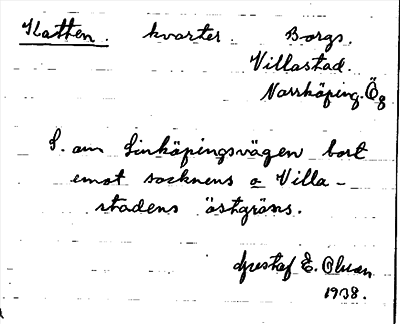 Hatten. kvarter. Borgs.
Villastad.
Norrköping. Ög
S. om Linköpingsvägen bort
emot socknens o Villa-
stadens östgräns.
Gustaf E. Olsson
1938.